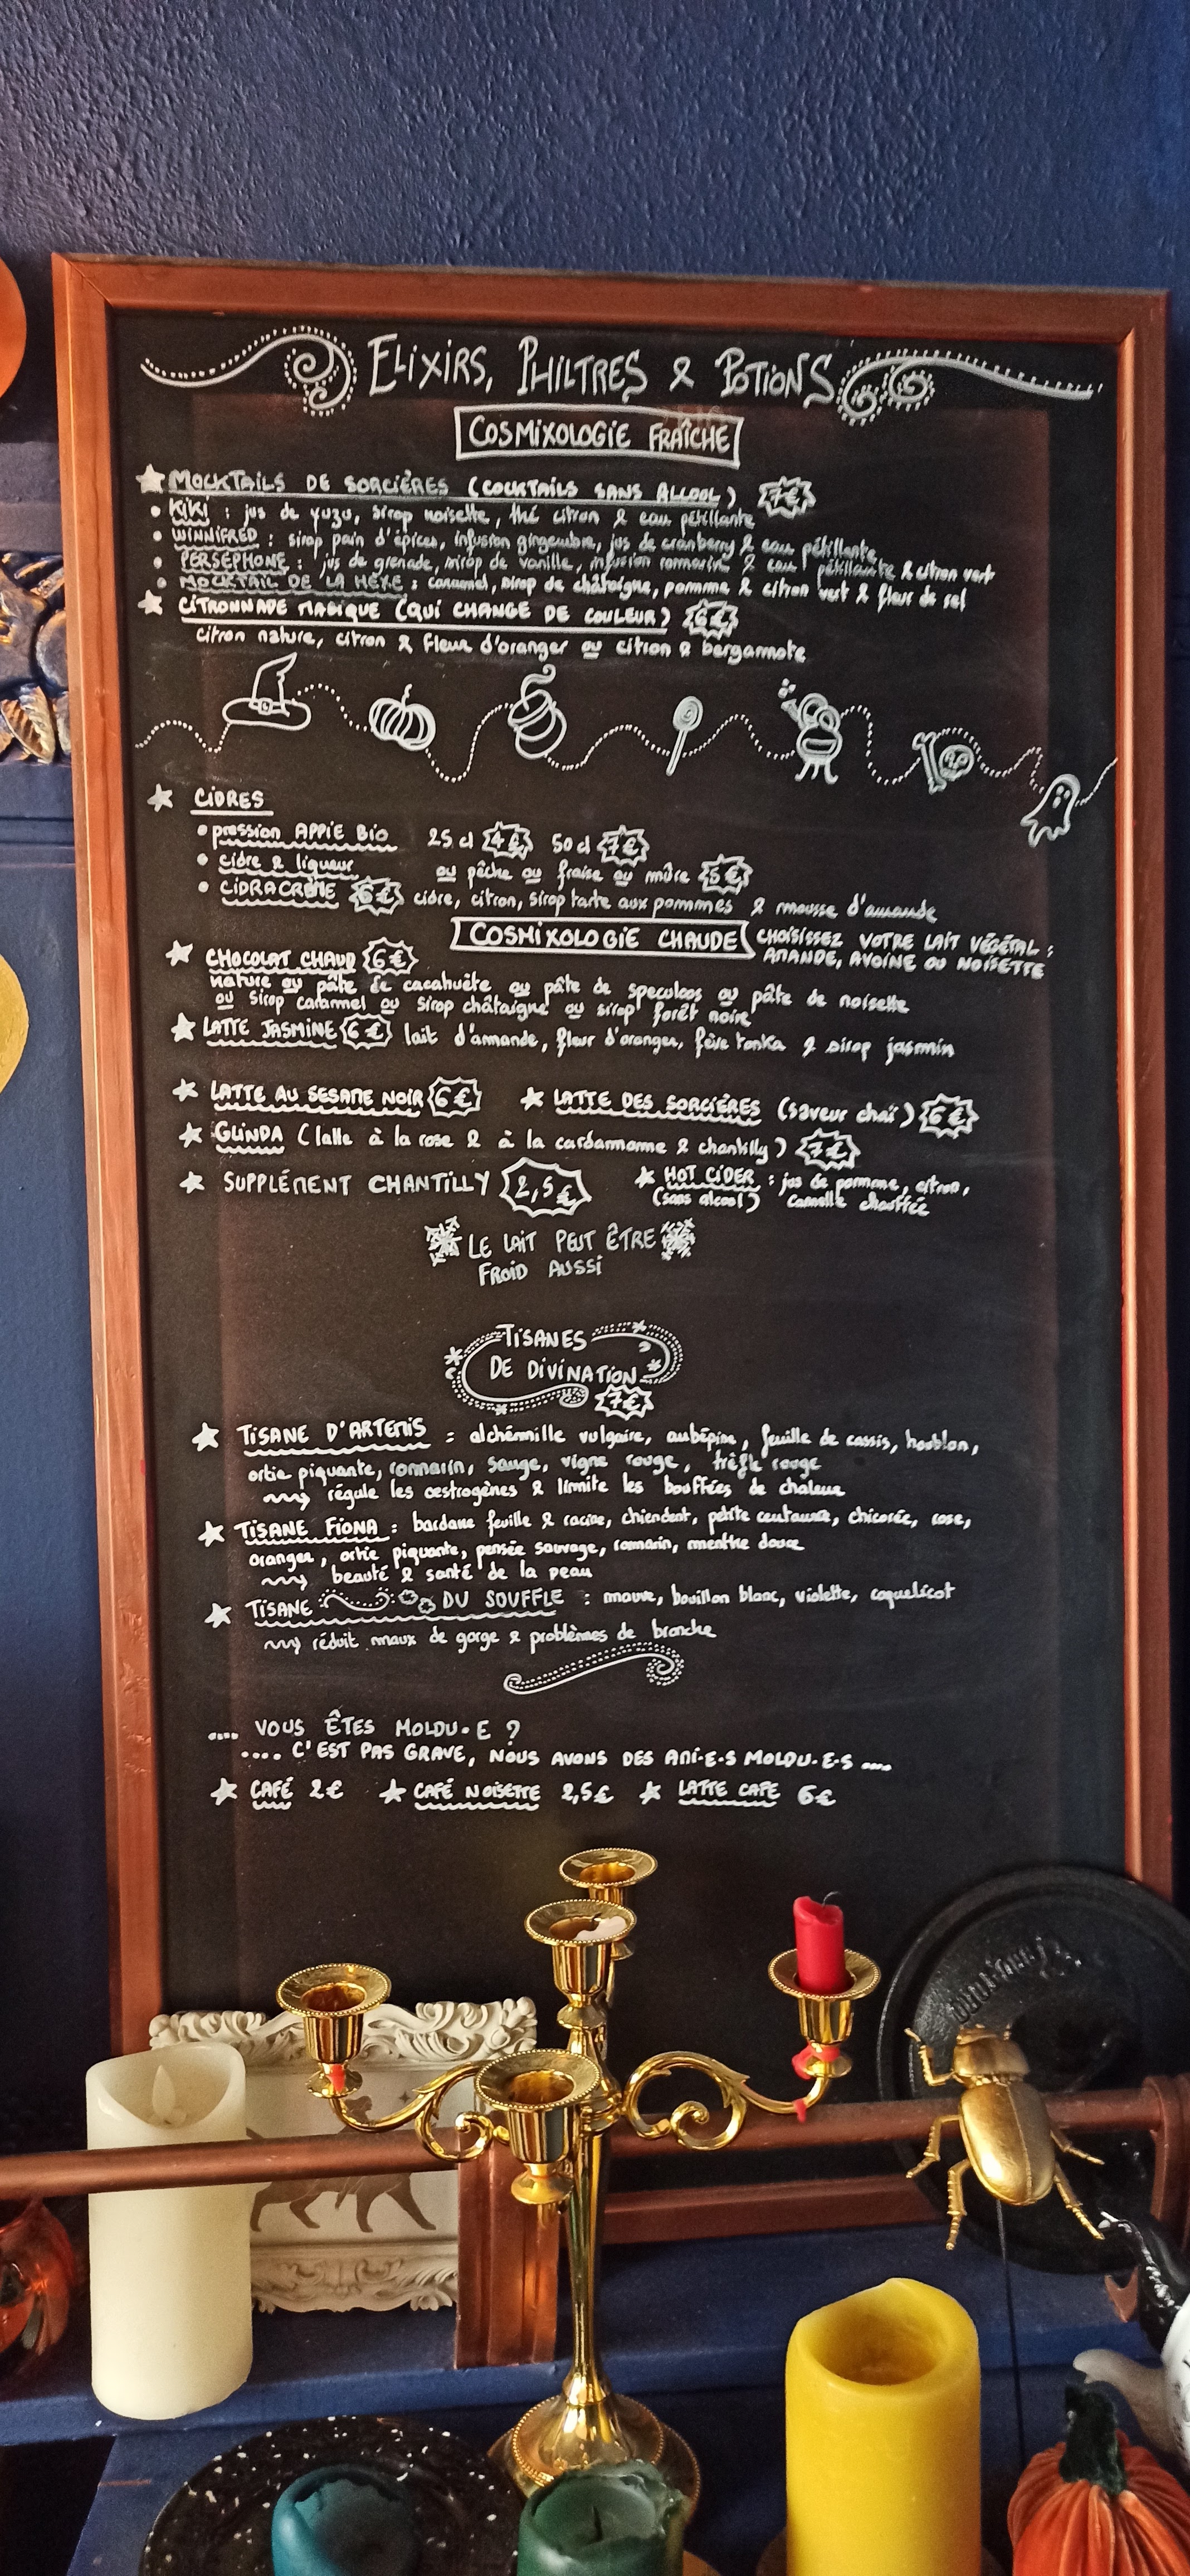 ELIXIRS, PHILTRES & POTIONS
COSMIXOLOGIE FRAÎCHE
MOCKTAILS DE SORCIÈRES (COCKTAILS SANS ALCOOL) 7€
KIKI : jus de yuzu, sirop noisette, thé citron & eau pétillante
WINNIFRED : sirop pain d'épices, infusion gingembre, jus de cranberry & eau pétillante
PERSEPHONE : jus de grenade, sirop de vanille, infusion romarin & eau pétillante & citron vert
MOCKTAIL DE LA HEXE : caramel, sirop de châtaigne, pomme & citron vert & fleur de sel
CITRONNADE MAGIQUE (QUI CHANGE DE COULEUR) 6€
citron nature, citron & fleur d'oranger ou citron & bergamote
CIDRES
pression APPIE Bio 25 cl 4€ 50 cl 7€
cidre & liqueur ou pêche ou fraise ou mûre 5€
CIDRACRÔME 6€ cidre, citron, sirop tarte aux pommes & mousse d'amande
COSMIXOLOGIE CHAUDE CHOISISSEZ VOTRE LAIT VÉGÉTAL :
AMANDE, AVOINE OU NOISETTE
CHOCOLAT CHAUD 6€
nature ou pâte de cacahuète ou pâte de speculoos ou pâte de noisette
ou sirop caramel ou sirop châtaigne ou sirop forêt noire
LATTE JASMINE 6€ lait d'amande, fleur d'oranger, fève tonka & sirop jasmin
LATTE AU SESAME NOIR 6€ LATTE DES SORCIÈRES (saveur chaï) 6€
GLINDA (latte à la rose & à la cardamome & chantilly) 7€
SUPPLÉMENT CHANTILLY 2,5€ HOT CIDER : jus de pomme, citron,
(sans alcool) cannelle chauffée
LE LAIT PEUT ÊTRE
FROID AUSSI
TISANES
DE DIVINATION
7€
TISANE D'ARTEMIS : alchémille vulgaire, aubépine, feuille de cassis, houblon,
ortie piquante, romarin, sauge, vigne rouge, trèfle rouge
régule les œstrogènes & limite les bouffées de chaleur
TISANE FIONA : bardane feuille & racine, chiendent, petite centaurée, chicorée, rose,
oranger, ortie piquante, pensée sauvage, romarin, menthe douce
beauté & santé de la peau
TISANE DU SOUFFLE : mauve, bouillon blanc, violette, coquelicot
réduit maux de gorge & problèmes de bronche
.... VOUS ÊTES MOLDU·E ?
.... C'EST PAS GRAVE, NOUS AVONS DES AMI·E·S MOLDU·E·S ....
CAFÉ 2€ CAFÉ NOISETTE 2,5€ LATTE CAFE 6€